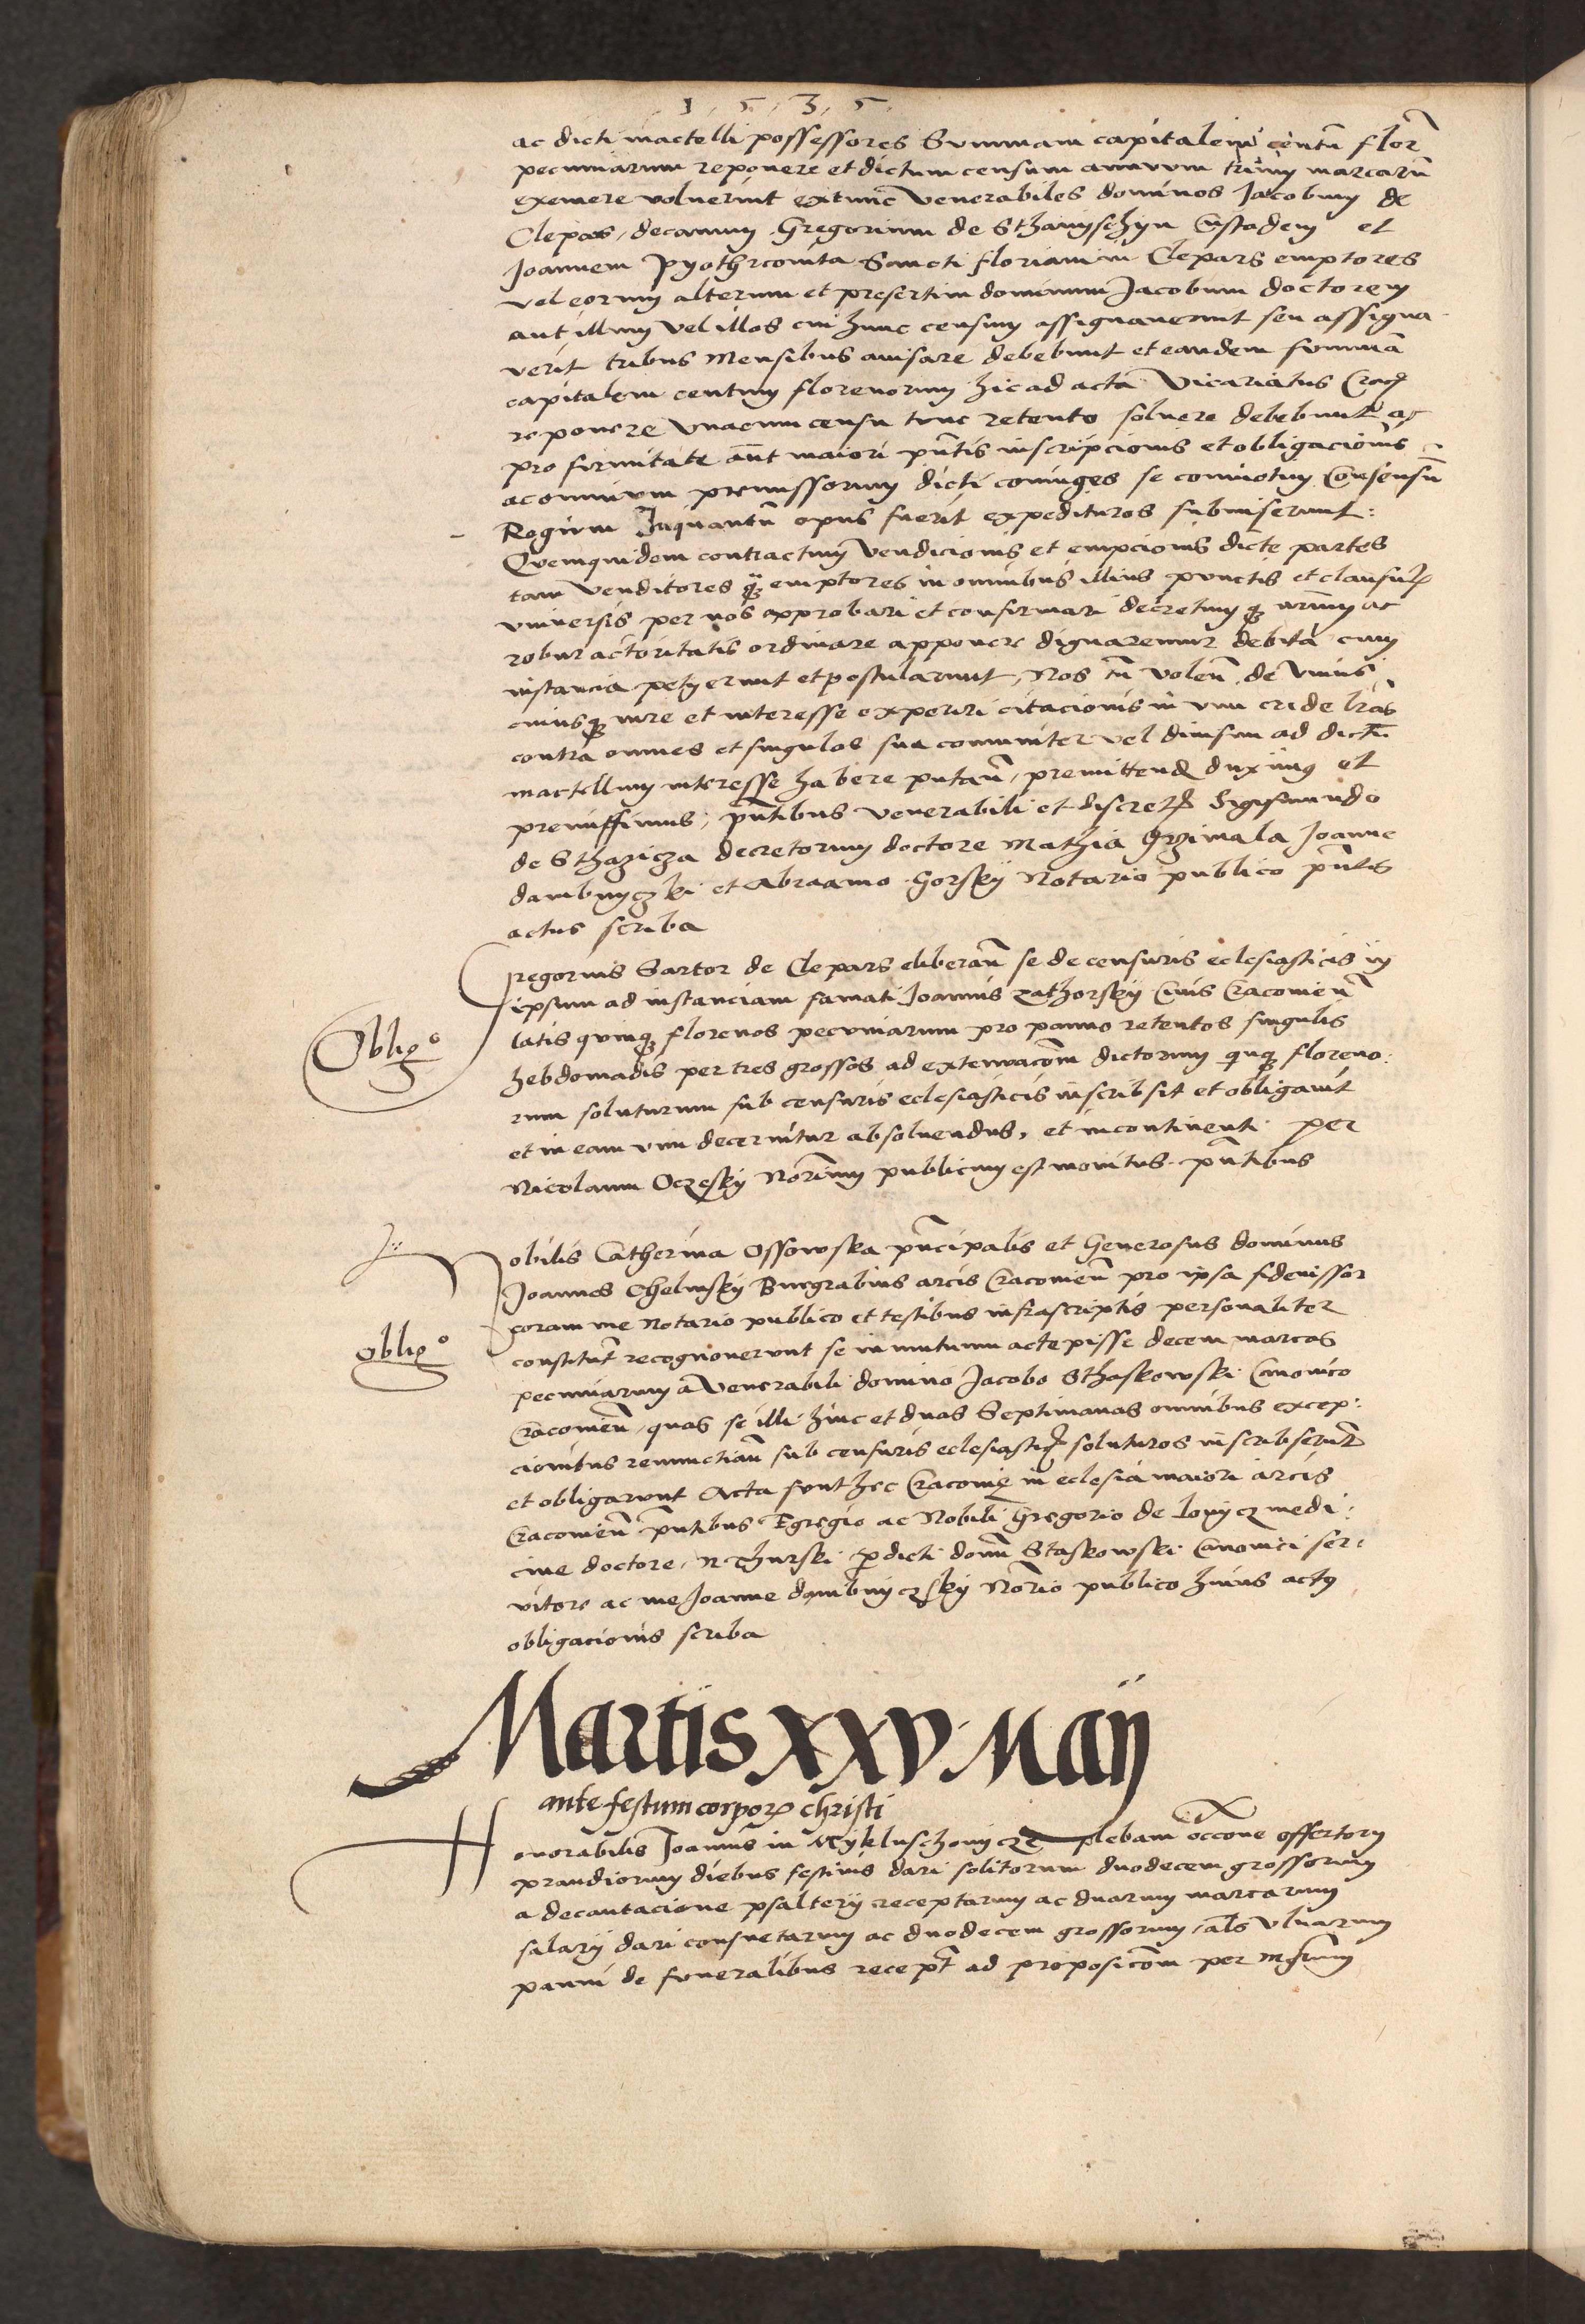 1 5 3 5
ac dicti mactelli possessores Summam capitalem centū florn̄
pecuniarum reponere et dictum censum annuum trium marcarū
exemere voluerint extunc venerabiles dominos Jacobum de
Clepars, decanum, Gregorium de Sthanyschyn Custodem et
Joannem Pyothrcovita Sancti floriani in Clepars emptores
vel eorum alterum et presertim dominum Jacobum doctorem
aut illum vel illos cui hunc censum assignaverunt seu assigna
verit tribus Mensibus avisare debebunt et eandem summā
capitalem centum florenorum hic ad acta Vicariatus Crac
reponere unacum censu tunc retento solvere debebunt ac
pro firmitate aūt maiori pn̄tis inscripcionis et obligacionis
ac omnium premissorum dicti coniuges se communem Consensū
Regium Inquantū opus fuerit expedituros submiserunt:
Quemquidem contractum vendicionis et empcionis dicte partes
tam venditores q̄ emptores in omnibus illius punctis et clausul
universis per nos approbari et confirmari decretumq nrm̄ ac
robur actoritatis ordinare apponere dignaremur debita cum
instancia petyerunt et postularunt, Nos tn̄ volen̄ de unius
cuiusq iure et interesse experiri citacionis in vim cride lr̄as
contra omnes et singulos sua communiter vel divisim ad dictū
mactellum interesse habere putan̄, premittend duximus et
premissimus, pn̄tibus venerabili et discret Sigismundo
de Sthazicza decretorum doctore Mathia Grzimala Joanne
dambnyczki et Abraamo Gorsky Notario publico pn̄tis
actus scriba
Gregorius Sartor de Clepars eliberan̄ se de censuris eclesiasticis in
ipsum ad instanciam famati Joannis Zathorsky Civis Cracovien̄
Oblig° latis quinq florenos pecuniarum pro panno retentos singulis
hebdomadis per tres grossos ad extenuacōm dictorum quinq floreno:
rum soluturum sub censuris eclesiasticis inscribsit et obligavit
et in eam vim decernitur absolvendus, et incontinenti per
Nicolaum Oczesky Norīum publicum est monitus. pn̄tibus
Nobilis Catherina Ossowska prn̄cipalis et Generosus dominus
Joannes Chelmsky Burgrabius arcis Cracovien̄ pro ipsa fideiussor
coram me Notario publico et testibus infrascriptis personaliter
oblig° constitut̄ recognoverunt se in mutuum accepisse decem marcas
pecuniarum a Venerabili domino Jacobo Sthaskowski Canonico
Cracovien̄, quas se illi hinc et duas Septimanas omnibus excep:
cionibus renunctian̄ sub censuris eclesiastic soluturos inscribserunt
et obligarunt Acta sunt hec Cracovie in eclesia maiori arcis
Cracovien̄ pn̄tibus Egregio ac Nobili Gregorio de lovycz medi:
cine doctore, N Thurski p̄dicti domī Staskowski Canonici ser:
vitore ac me Joanne dambnyczsky Nōrio publico huius actus
obligacionis scriba
Martis XXV Maÿ
ante festum corporis christi
Honorabilis Joannis in Mykluschovycze plebani occ̄one offertory
prandiorum diebus festivis dari solitorum duodecem grossorum
a decantacione psalterÿ receptarum ac duarum marcarum
salarÿ dari consuetarum ac duodecem grossorum, als ulnarum
panni de funeralibus recept̄ ad proposicōm per